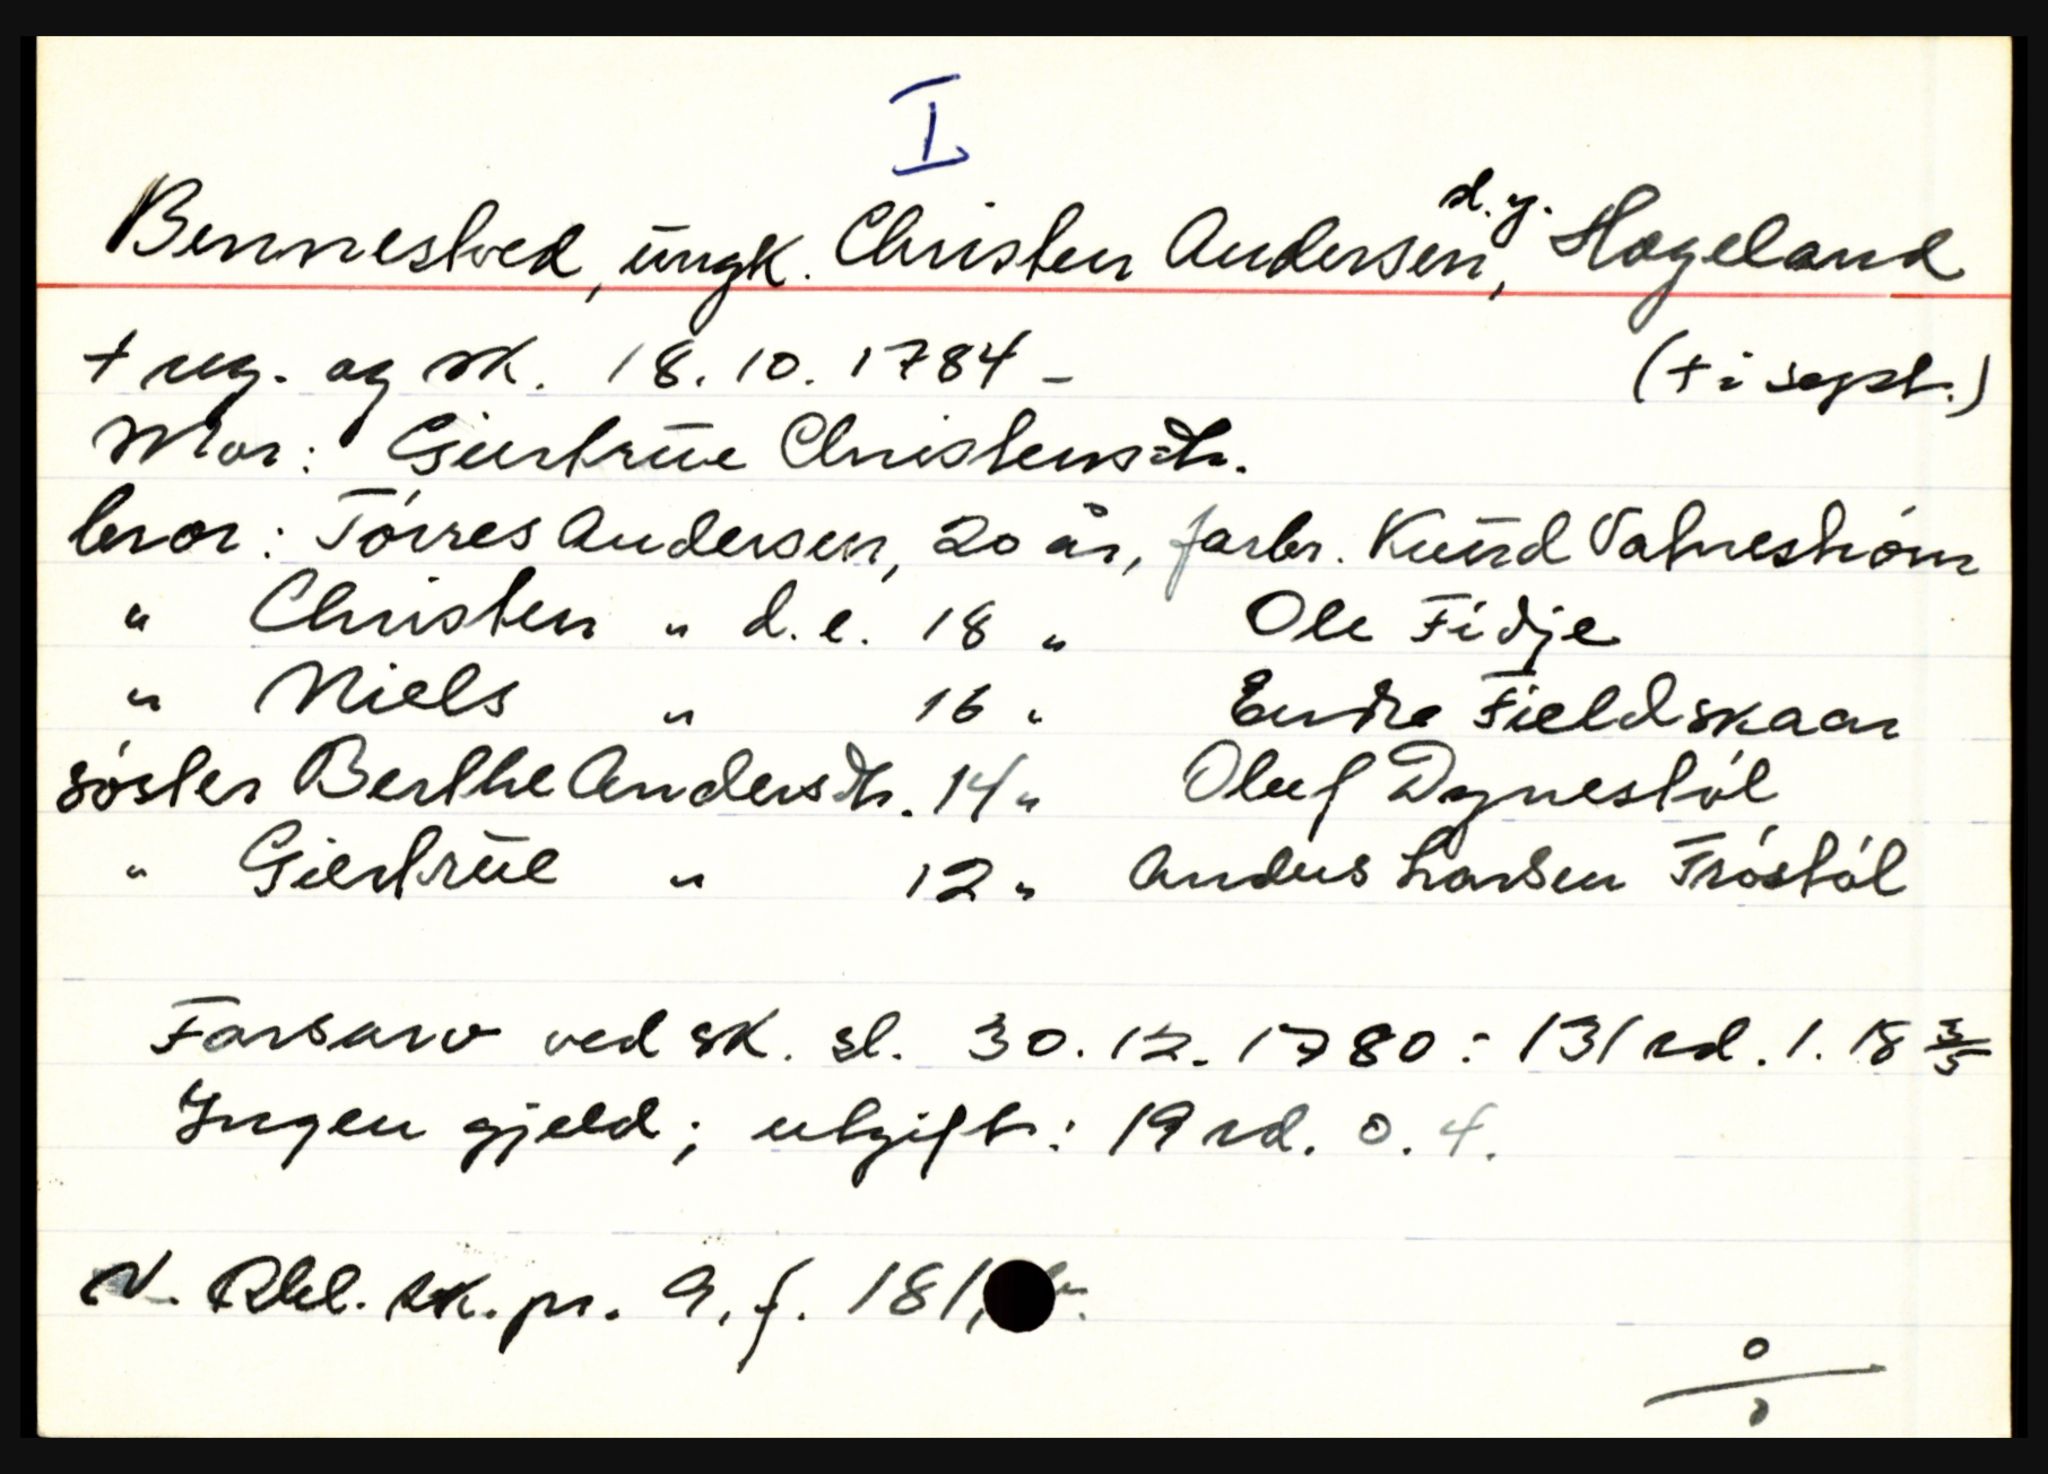 I
Bennestved, ungk. Christen Andersen, d.y. Hageland
+ reg. og sk. 18.10.1784 – (+ i sept.)
Mor: Giertrue Christensdtr.
bror: Tórres Andersen, 20 år, farbr. Knud Vatnestrøm
" Christen " d.e. 18 " Ole Fidje
" Niels " 16 " Endre Fieldskaar
sóster Berthe Andersdtr. 14 " Oluf Dynestól
" Giertrue " 12 " Anders Larsen Tróstól
Farsarv ved sk. sl. 30.12.1780: 131 rd. 1. 18 3/5
Ingen gjeld; utgift: 19 rd. 0. 4.
N. Rbl. sk. pr. 9, f. 181,